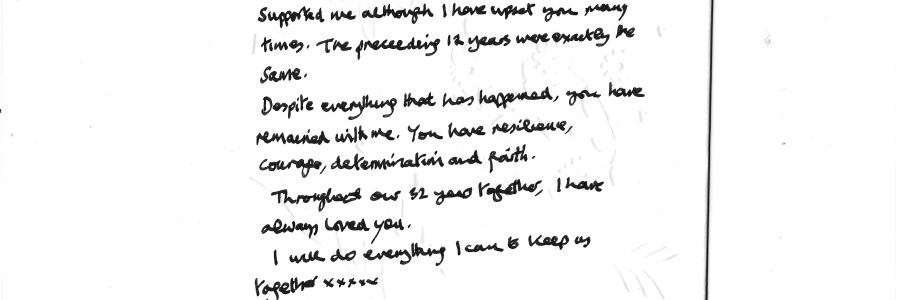 Supported me although I have upset you many
times. The preceeding 12 years were exactly the
same.
Despite everything that has happened, you have
remained with me. You have resilience,
courage, determination and faith.
Throughout our 32 years together, I have
always loved you.
I will do everything I can to keep us
together xxxxx